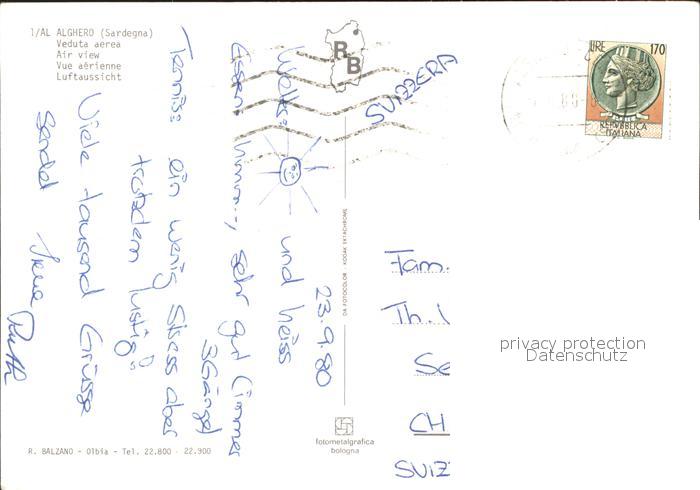 1/AL ALGHERO (Sardegna)
Veduta aerea
Air view
Vue aérienne
Luftaussicht
RB
LIRE 170
REPVBBLICA
ITALIANA
SVIZZERA
23.9.80
und heiss
Essen: hmm--, sehr gut (immer
3 Gänge)
Tennis: ein wenig Stress aber
trotzdem lustig!
Viele tausend Grüsse
sendet Irene
Ruth
Fam.
Th.
Se
CH
SVIZ
DA FOTOCOLOR KODAK EKTACHROME
privacy protection
Datenschutz
fotometalgrafica
bologna
R. BALZANO - Olbia - Tel. 22.800 - 22.900